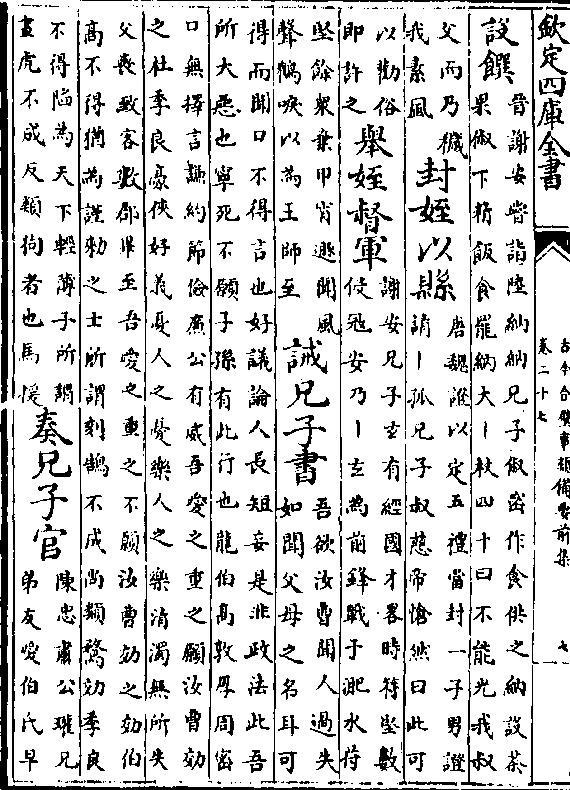 欽定四庫全書
古今合璧事類備要前集
卷二十七
七
設饌
昔謝安嘗詣陸納納兄子俶密作食供之納設茶
果俶下精飯食罷納大丨杖四十曰不能光我叔
父而乃穢
我素風
封姪以縣
唐魏證以定五禮當封一子男證
請丨孤兄子叔慈帝愴然曰此可
以勸俗
即許之
舉姪督軍
謝安兄子玄有經國才畧時苻堅數
侵冦安乃丨玄為前鋒戰于淝水苻
堅餘衆棄甲宵遁聞風
聲鶴唳以為王師至
誡兄子書
吾欲汝曹聞人過失
如聞父母之名耳可
得而聞口不得言也好議論人長短妄是非政法此吾
所大惡也寧死不願子孫有此行也龍伯高敦厚周密
口無擇言謙約節儉廉公有威吾愛之重之願汝曹効
之杜季良豪俠好義憂人之憂樂人之樂清濁無所失
父喪致客數郡畢至吾愛之重之不願汝曹効之効伯
高不得猶為謹勅之士所謂刻鵠不成尚類鶩効季良
不得陷為天下輕薄子所謂
畫虎不成反類狗者也馬援
奏兄子官
陳忠肅公瓘兄
弟友愛伯氏早